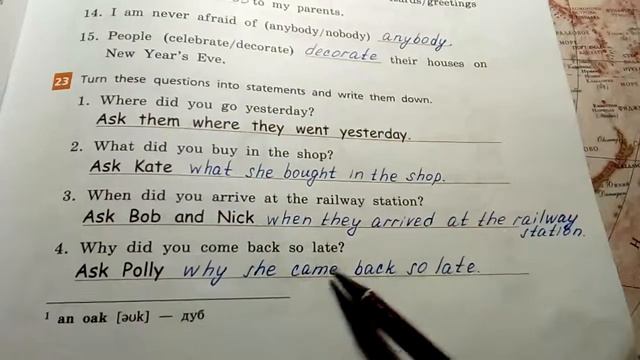 to my parents.
14. I am never afraid of (anybody/nobody) anybody.
15. People (celebrate/decorate) decorate their houses on
New Year's Eve.
23 Turn these questions into statements and write them down.
1. Where did you go yesterday?
Ask them where they went yesterday.
2. What did you buy in the shop?
Ask Kate what she bought in the shop.
3. When did you arrive at the railway station?
Ask Bob and Nick when they arrived at the railway
station.
4. Why did you come back so late?
Ask Polly why she came back so late.
1 an oak [əuk] — дуб